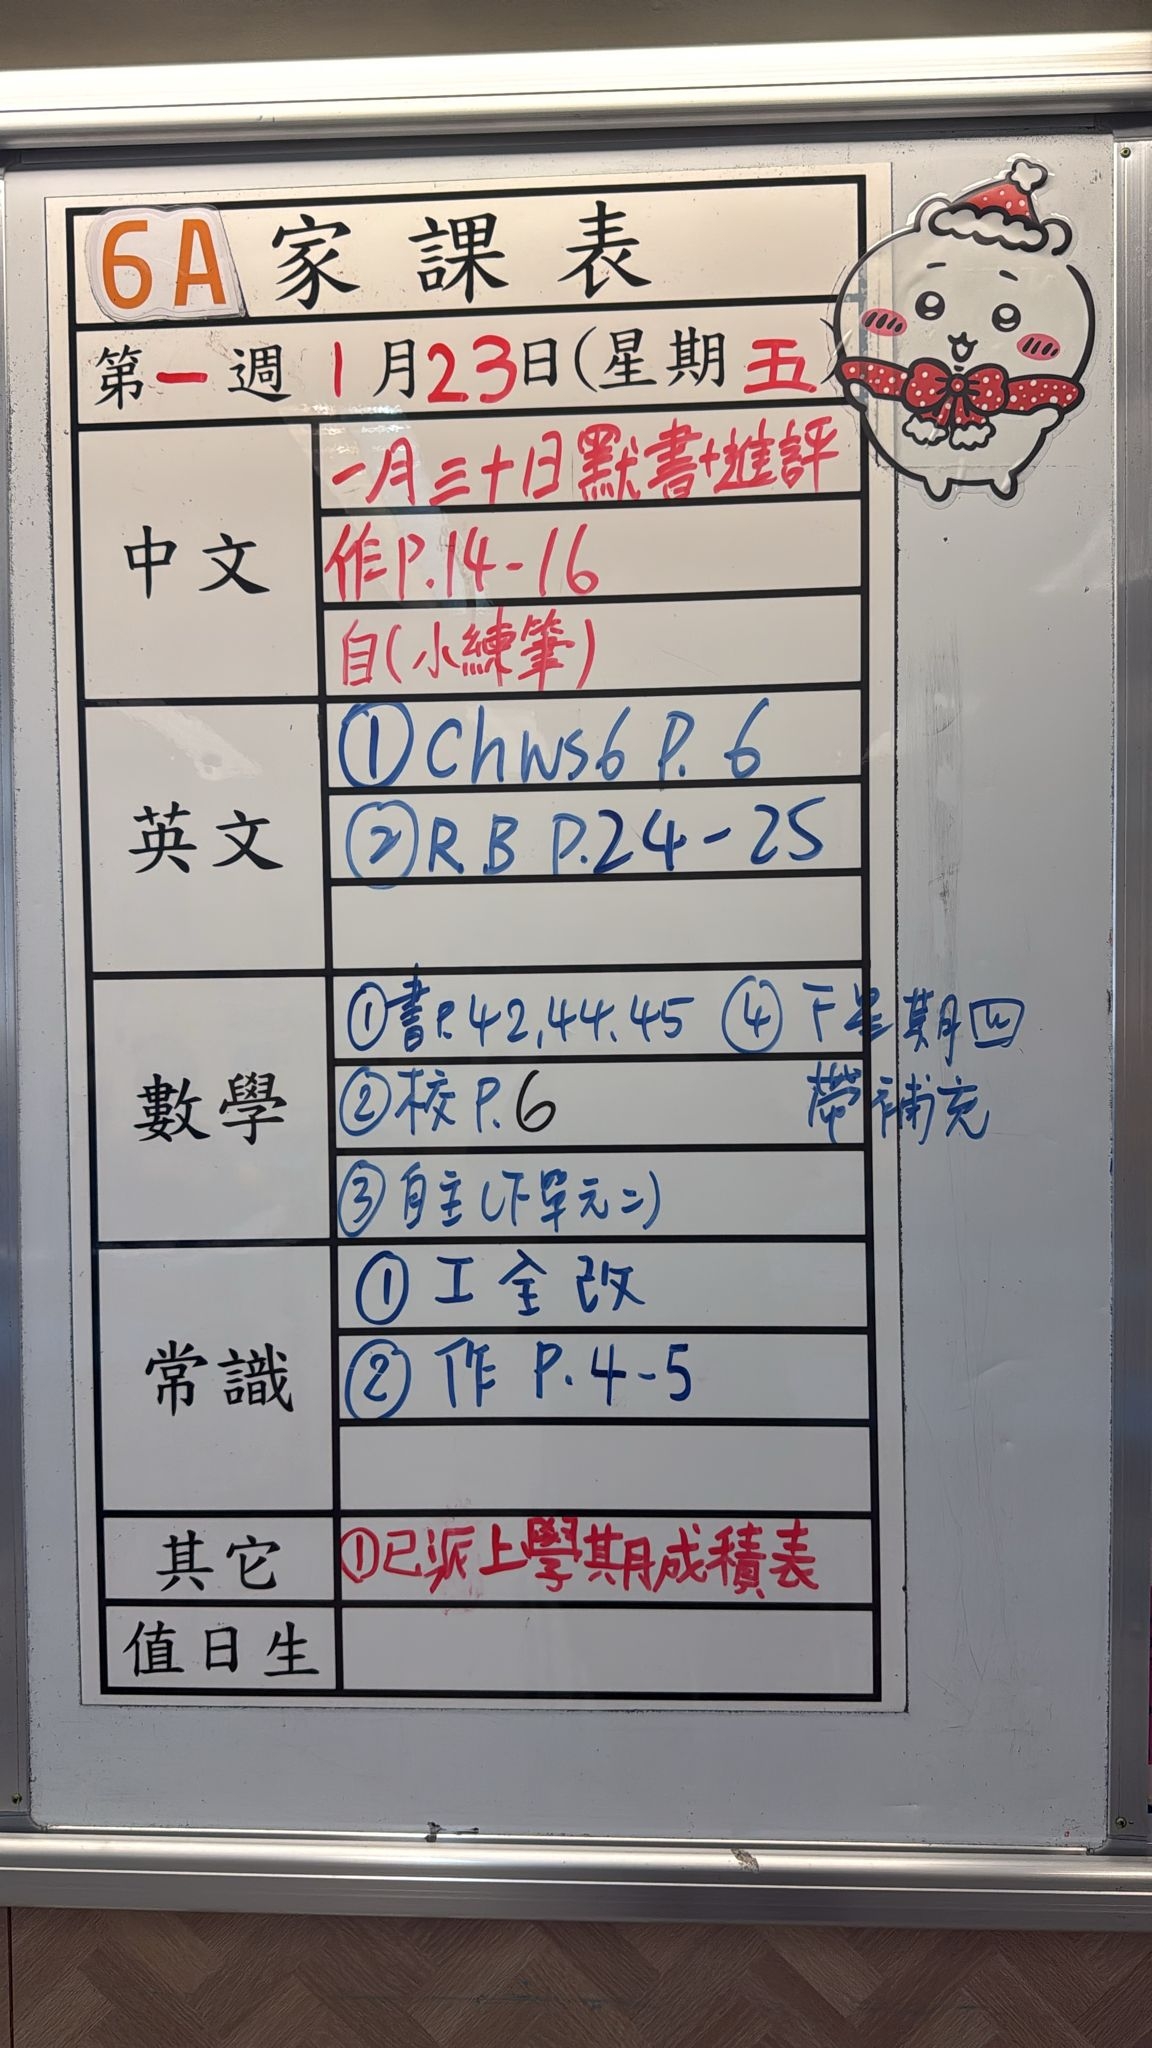 6A 家課表
第一週 1月23日(星期五)
中文
一月三十日默書+進評
作P.14-16
自(小練筆)
英文
①Chws6 P. 6
②RB P.24-25
數學
①書P.42,44.45 ④下星期四
②校P.6 帶補充
③自主(下單元二)
常識
①工全改
②作 P.4-5
其它
①已派上學期成積表
值日生